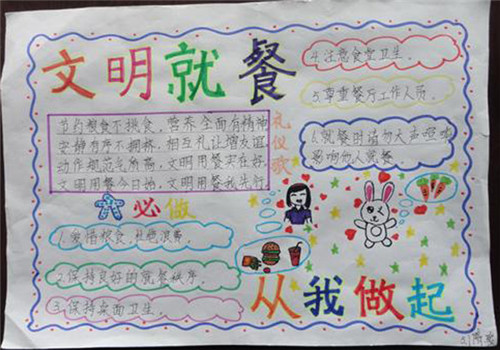 文明就餐
节约粮食不挑食，营养全面有精神
安静有序不拥挤，相互礼让增友谊
动作规范气质高，文明用餐实在好
文明用餐今日始，文明用餐我先行
礼仪歌
六必做
1.爱惜粮食，杜绝浪费。
2.保持良好的就餐秩序。
3.保持桌面卫生。
4.注意食堂卫生。
5.尊重餐厅工作人员。
6.就餐时请勿大声喧哗
影响他人就餐。
从我做起